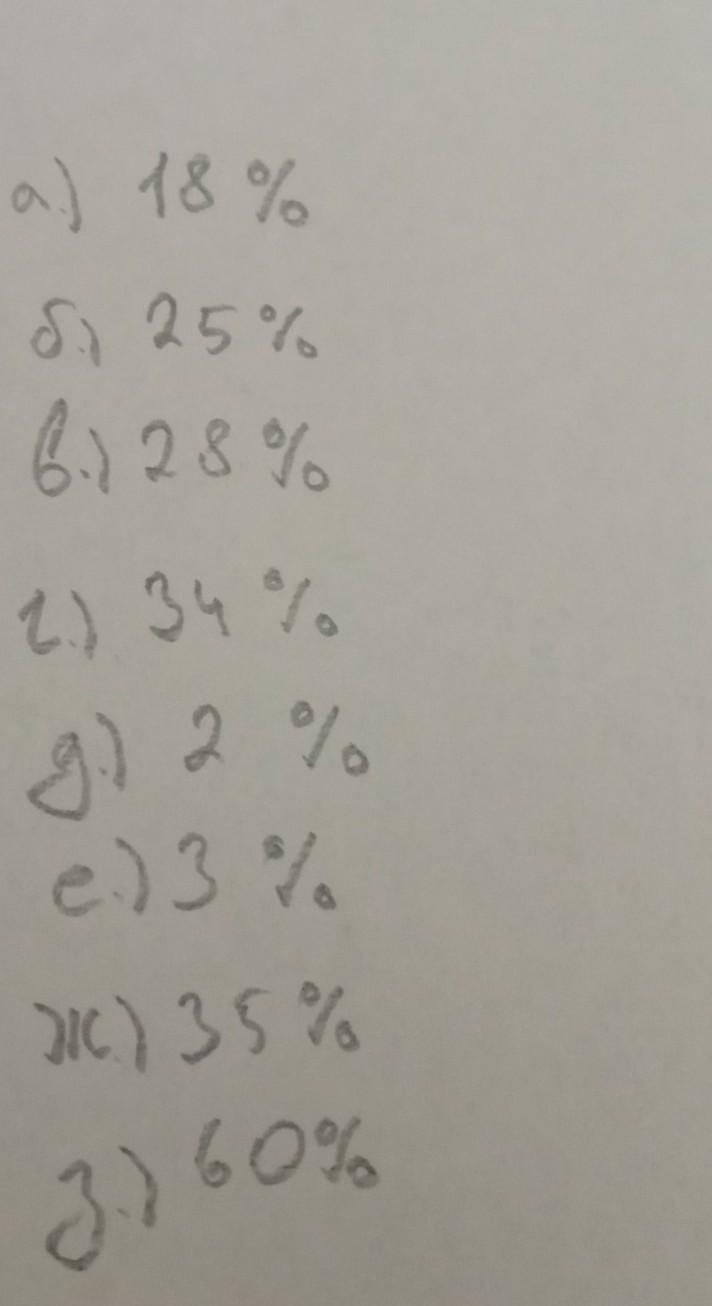 а.) 18 %
б.) 25 %
в.) 28 %
г.) 34 %
д.) 2 %
е.) 3 %
ж.) 35 %
з.) 60 %